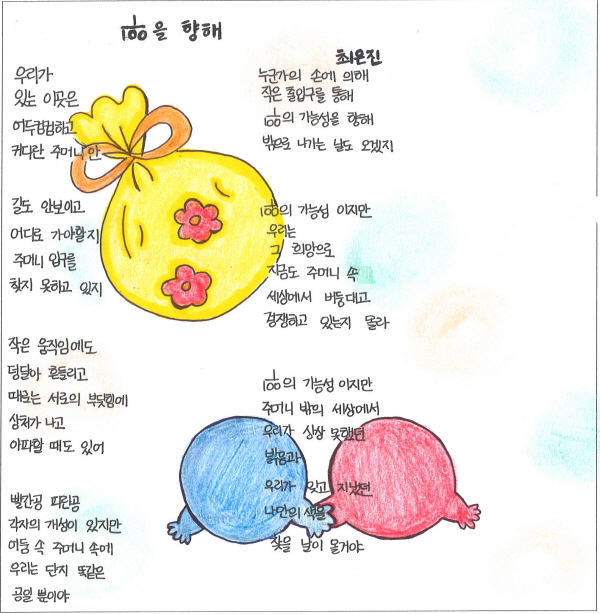 1/100을 향해
최은진
우리가
있는 이곳은
어두컴컴하고
커다란 주머니 안
길도 안보이고
어디로 가야할지
주머니 입구를
찾지 못하고 있지
작은 움직임에도
덩달아 흔들리고
때로는 서로의 부딪힘에
상처가 나고
아파할 때도 있어
빨간공 파란공
각자의 개성이 있지만
어둠 속 주머니 속에
우리는 단지 똑같은
공일 뿐이야
누군가의 손에 의해
작은 출입구를 통해
1/100의 가능성을 향해
밖으로 나가는 날도 오겠지
1/100의 가능성 이지만
우리는
그 희망으로
지금도 주머니 속
세상에서 버둥대고
경쟁하고 있는지 몰라
1/100의 가능성 이지만
주머니 밖의 세상에서
우리가 상상 못했던
밝음과
우리가 잊고 지냈던
나만의 색을
찾을 날이 올거야